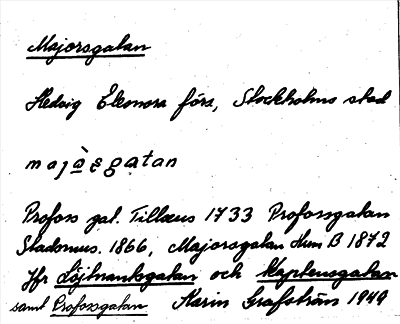 Majorsgatan
Hedvig Eleonora förs, Stockholms stad
majo̱rsgatan
Profoss gat. Tillæus 1733 Profossgatan
Stadsmus. 1866, Majorsgatan Hum B 1872
Jfr Löjtnantsgatan och Kaptensgatan
samt Profossgatan Karin Grafström 1949